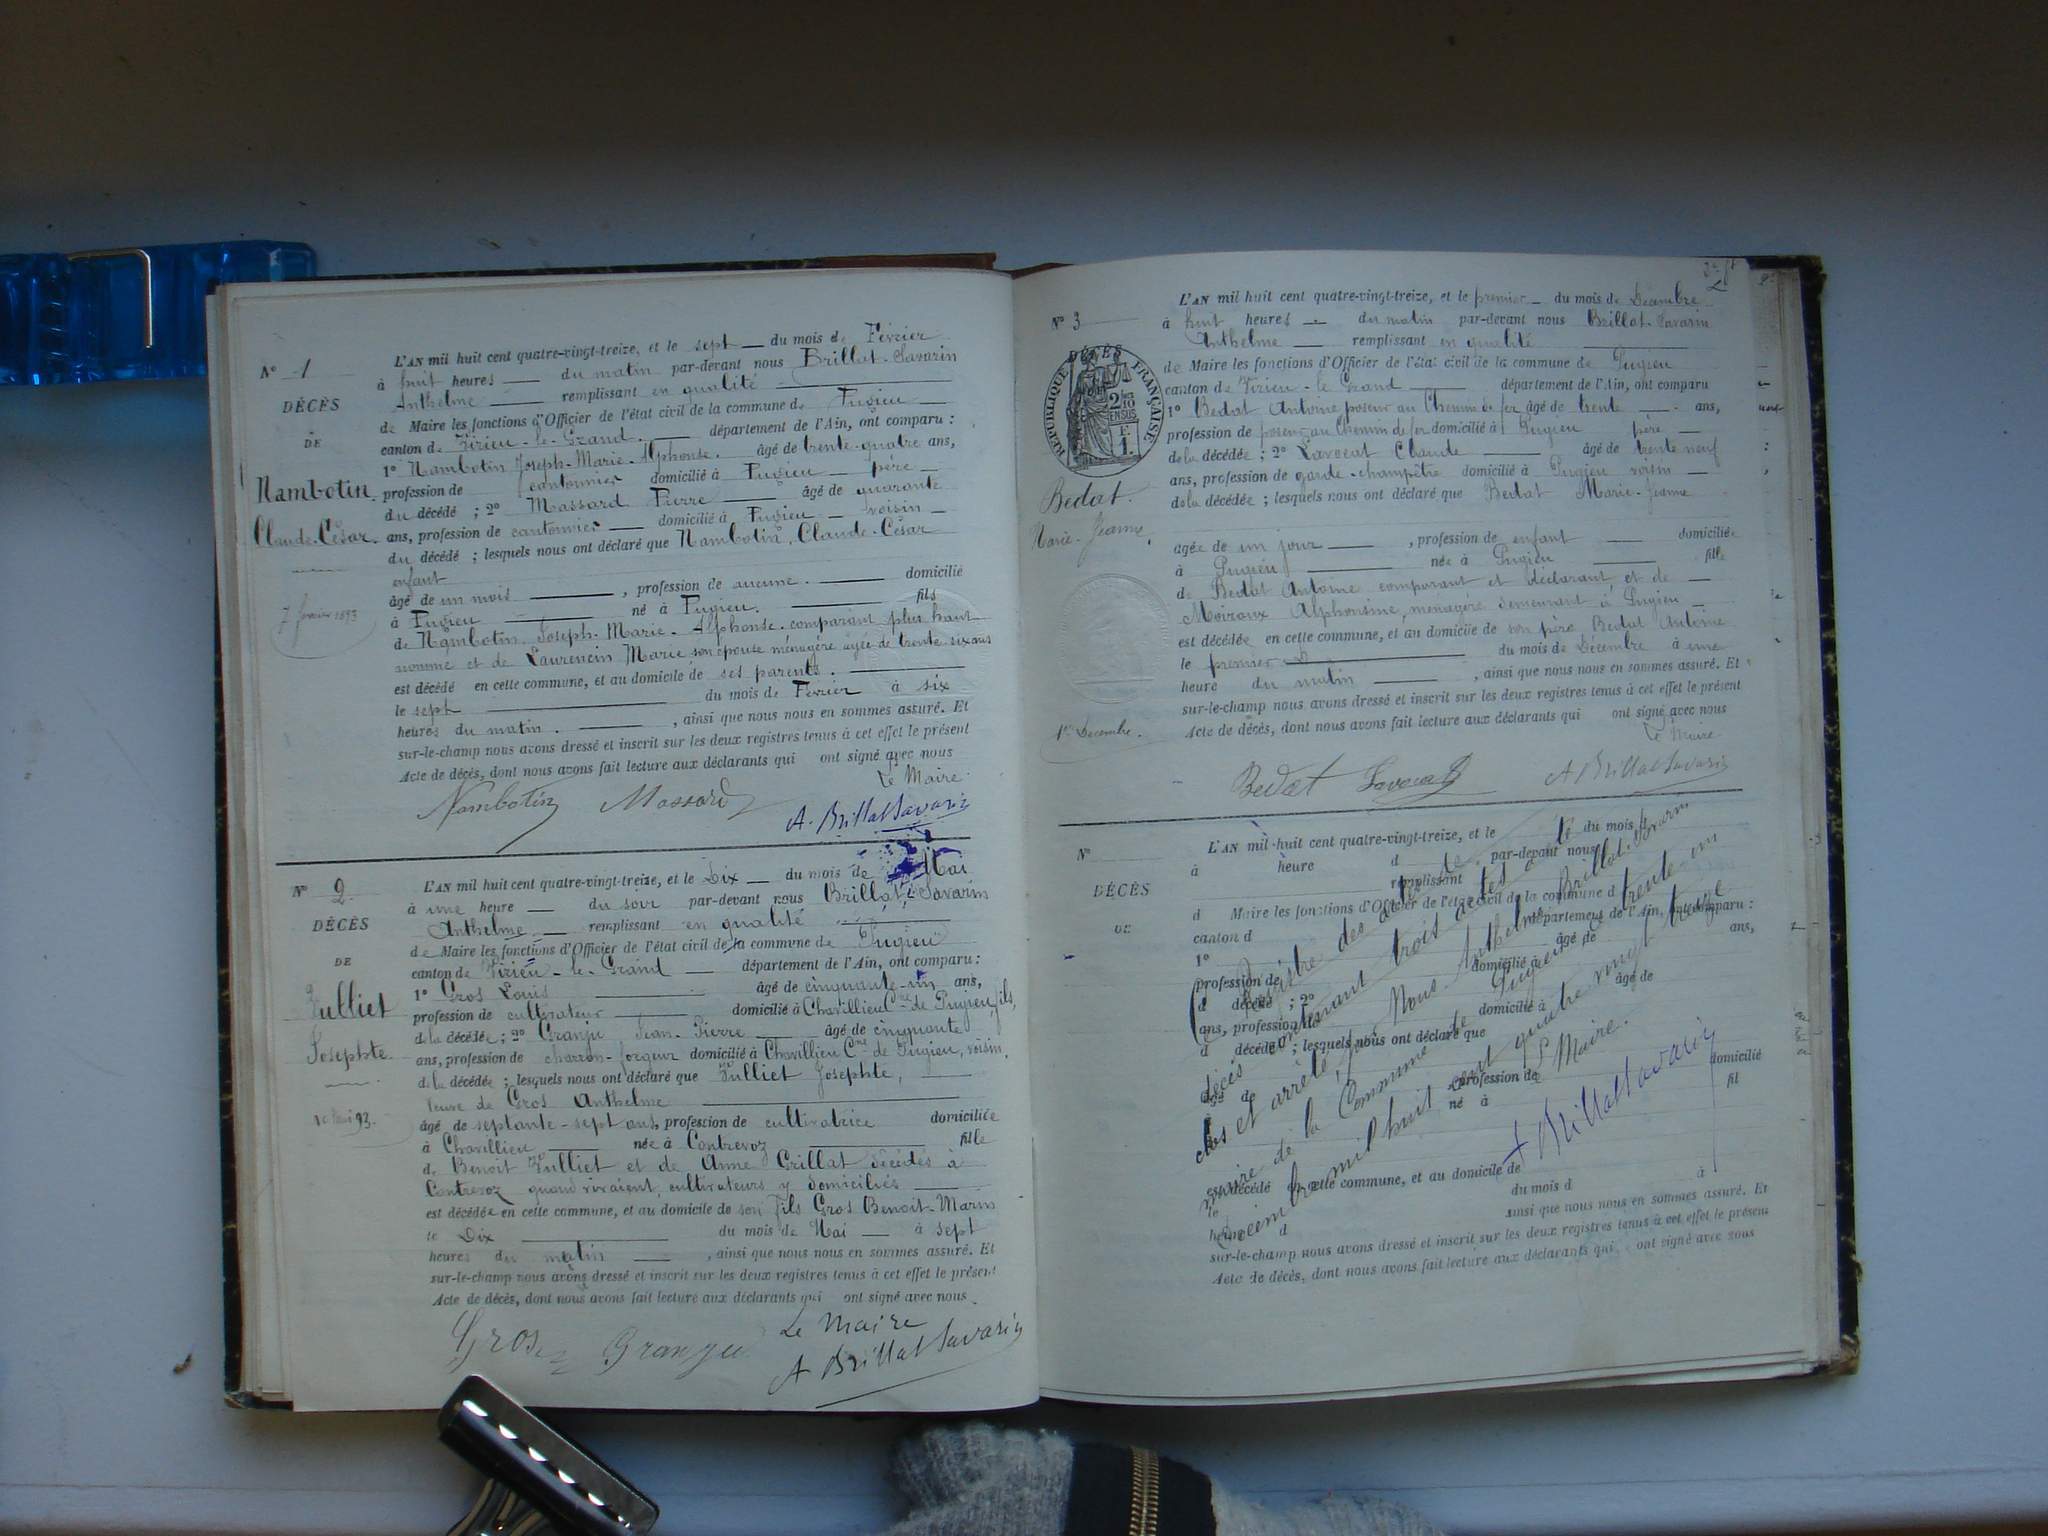 N° 1
DÉCÈS
DE
Nambotin
Claude-César
7 février 1893
L'AN mil huit cent quatre-vingt-treize, et le sept du mois de Février
à huit heures du matin par-devant nous Brillat-Savarin
Anthelme remplissant en qualité
de Maire les fonctions d'Officier de l'état civil de la commune de Pugieu
canton de Virieu-le-Grand département de l'Ain, ont comparu :
1° Nambotin Joseph-Marie-Alphonse âgé de trente-quatre ans,
profession de cantonnier domicilié à Pugieu père
du décédé ; 2° Massard Pierre âgé de quarante
ans, profession de cantonnier domicilié à Pugieu voisin
du décédé ; lesquels nous ont déclaré que Nambotin, Claude-César
enfant
âgé de un mois, profession de aucune. domicilié
à Pugieu né à Pugieu. fils
de Nambotin Joseph-Marie-Alphonse comparant plus haut
nommé et de Laurencin Marie son épouse ménagère agée de trente-six ans
est décédé en cette commune, et au domicile de ses parents.
le sept du mois de Février à six
heures du matin. , ainsi que nous nous en sommes assuré. Et
sur-le-champ nous avons dressé et inscrit sur les deux registres tenus à cet effet le présent
Acte de décès, dont nous avons fait lecture aux déclarants qui ont signé avec nous
Le Maire
Nambotin Massard A. Brillat Savarin
N° 2
DÉCÈS
DE
Julliet
Josephte
10 Mai 93.
L'AN mil huit cent quatre-vingt-treize, et le Dix du mois de Mai
à une heure du soir par-devant nous Brillat-Savarin
Anthelme remplissant en qualité
de Maire les fonctions d'Officier de l'état civil de la commune de Pugieu
canton de Virieu-le-Grand département de l'Ain, ont comparu :
1° Gros Louis âgé de cinquante-un ans,
profession de cultivateur domicilié à Chavillieu Cne de Pugieu, fils,
de la décédée ; 2° Granju Jean-Pierre âgé de cinquante
ans, profession de charron-forgeur domicilié à Chavillieu Cne de Pugieu, voisin
de la décédée ; lesquels nous ont déclaré que Julliet Josephte,
Veuve de Gros Anthelme
âgé de septante-sept ans, profession de cultivatrice domiciliée
à Chavillieu née à Contrevoz fille
de Benoit Julliet et de Anne Grillat décédés à
Contrevoz quand vivaient, cultivateurs y domiciliés
est décédée en cette commune, et au domicile de son fils Gros Benoit-Marin
le Dix du mois de Mai à sept
heures du matin , ainsi que nous nous en sommes assuré. Et
sur-le-champ nous avons dressé et inscrit sur les deux registres tenus à cet effet le présent
Acte de décès, dont nous avons fait lecture aux déclarants qui ont signé avec nous.
Le Maire
Gros Granju A Brillat Savarin
N° 3
DÉCÈS
RÉPUBLIQUE FRANÇAISE
2/10 EN SUS
F. 1.
Bedat
Marie-Jeanne
1er Décembre.
L'AN mil huit cent quatre-vingt-treize, et le premier du mois de Décembre
à huit heures du matin par-devant nous Brillat-Savarin
Anthelme remplissant en qualité
de Maire les fonctions d'Officier de l'état civil de la commune de Pugieu
canton de Virieu-le-Grand département de l'Ain, ont comparu
1° Bedat Antoine poseur au Chemin de fer âgé de trente ans,
profession de poseur au Chemin de fer domicilié à Pugieu père
de la décédée ; 2° Lavocat Claude âgé de trente neuf
ans, profession de garde-champêtre domicilié à Pugieu voisin
de la décédée ; lesquels nous ont déclaré que Bedat Marie-Jeanne
agée de un jour , profession de enfant domiciliée
à Pugieu née à Pugieu fille
de Bedat Antoine comparant et déclarant et de
Moiroux Alphonsine, ménagère demeurant à Pugieu
est décédée en cette commune, et au domicile de son père Bedat Antoine
le premier du mois de Décembre à une
heure du matin , ainsi que nous nous en sommes assuré. Et
sur-le-champ nous avons dressé et inscrit sur les deux registres tenus à cet effet le présent
Acte de décès, dont nous avons fait lecture aux déclarants qui ont signé avec nous
Le Maire
Bedat Lavocat A Brillat Savarin
N°
DÉCÈS
DE
L'AN mil huit cent quatre-vingt-treize, et le du mois d
à heure d par-devant nous
remplissant
d Maire les fonctions d'Officier de l'état civil de la commune d
canton d département de l'Ain, ont comparu :
1° âgé de ans,
profession de domicilié à
d décédé ; 2° âgé de
ans, profession de domicilié à
d décédé ; lesquels nous ont déclaré que
âgé de profession de domicilié
à né à fil
est décédé en cette commune, et au domicile de
le du mois d à
heure d ainsi que nous nous en sommes assuré. Et
sur-le-champ nous avons dressé et inscrit sur les deux registres tenus à cet effet le présent
Acte de décès, dont nous avons fait lecture aux déclarants qui ont signé avec nous
Registre des actes de
décès contenant trois actes a été
clos et arrêté par Nous Anthelme Brillat-Savarin
maire de la Commune de Pugieu le trente-un
Décembre mil huit cent quatre vingt treize
Le Maire.
A Brillat Savarin